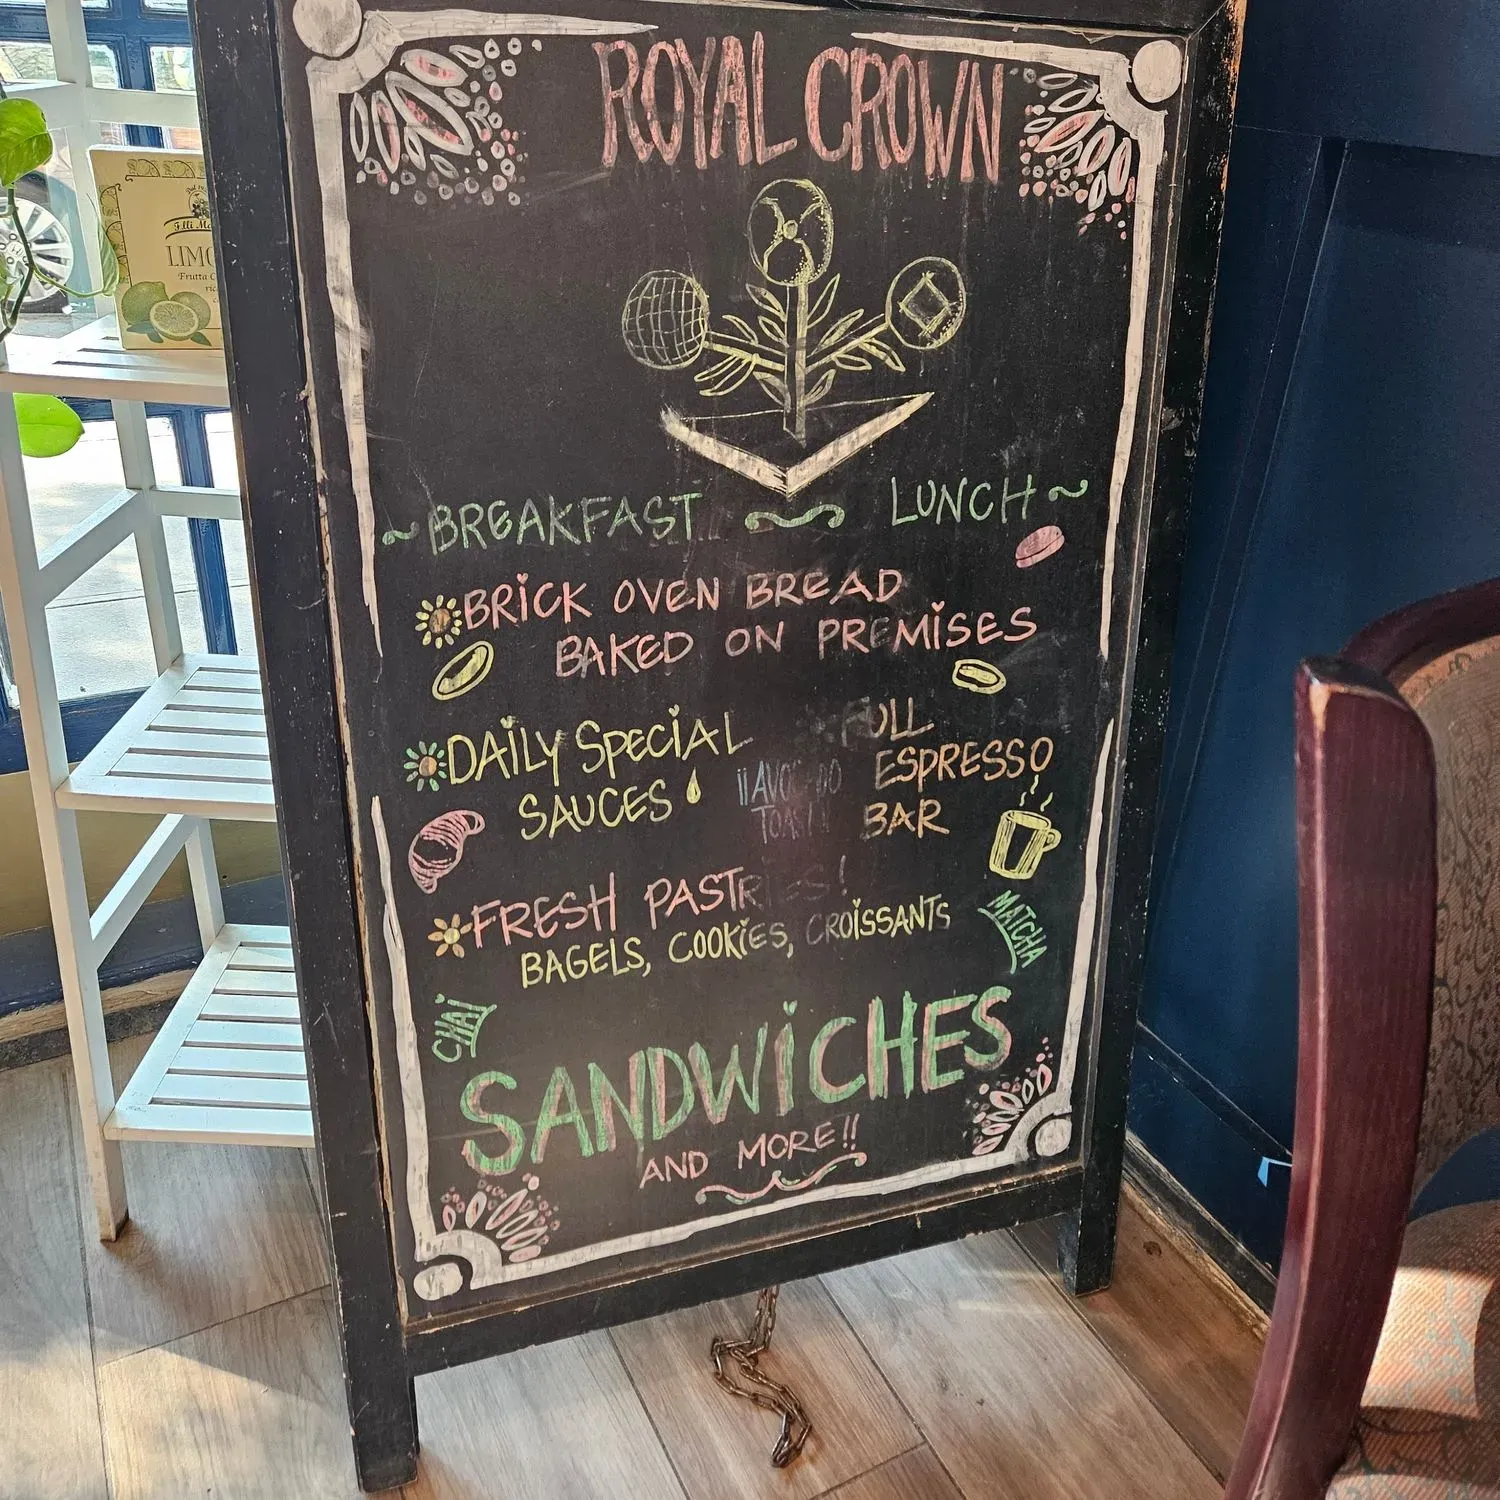 ROYAL CROWN
~BREAKFAST ~ LUNCH~
BRICK OVEN BREAD
BAKED ON PREMISES
DAILY SPECIAL
SAUCES
!!AVOCADO
TOAST!!
FULL
ESPRESSO
BAR
FRESH PASTRIES!
BAGELS, COOKIES, CROISSANTS
MATCHA
CHAI
SANDWICHES
AND MORE!!
Frutta